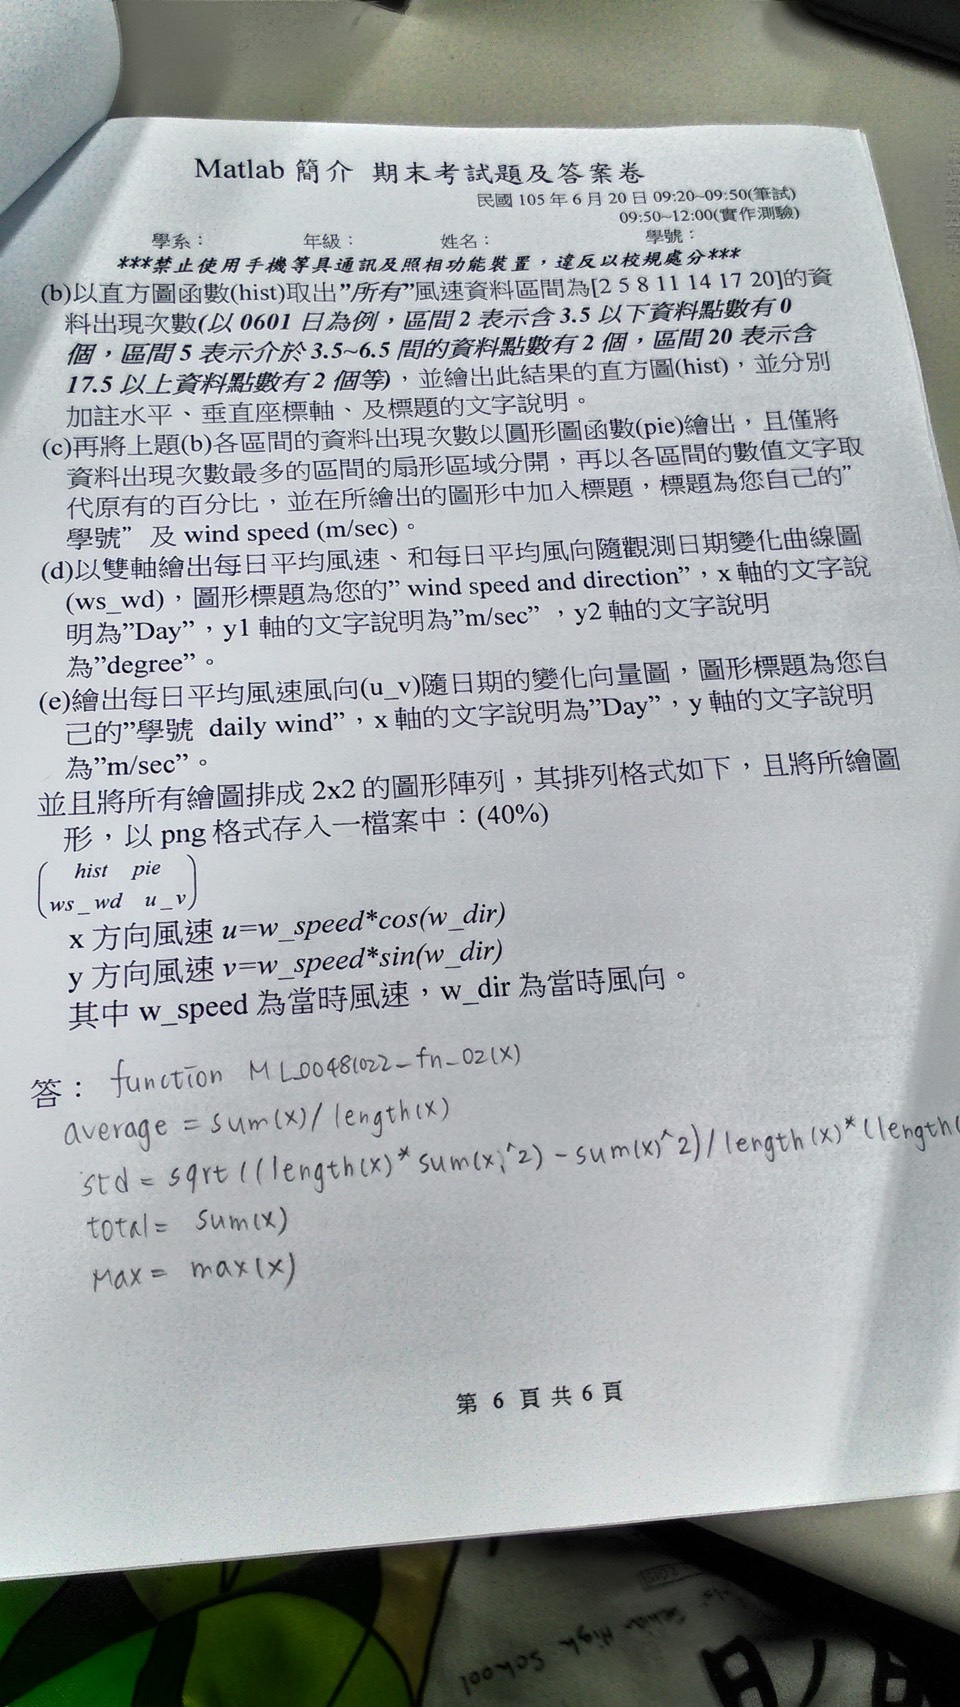 Matlab 簡介 期末考試題及答案卷
民國 105 年 6 月 20 日 09:20~09:50(筆試)
09:50~12:00(實作測驗)
學系： 年級： 姓名： 學號：
***禁止使用手機等具通訊及照相功能裝置，違反以校規處分***
(b)以直方圖函數(hist)取出”所有”風速資料區間為[2 5 8 11 14 17 20]的資
料出現次數(以 0601 日為例，區間 2 表示含 3.5 以下資料點數有 0
個，區間 5 表示介於 3.5~6.5 間的資料點數有 2 個，區間 20 表示含
17.5 以上資料點數有 2 個等)，並繪出此結果的直方圖(hist)，並分別
加註水平、垂直座標軸、及標題的文字說明。
(c)再將上題(b)各區間的資料出現次數以圓形圖函數(pie)繪出，且僅將
資料出現次數最多的區間的扇形區域分開，再以各區間的數值文字取
代原有的百分比，並在所繪出的圖形中加入標題，標題為您自己的”
學號” 及 wind speed (m/sec)。
(d)以雙軸繪出每日平均風速、和每日平均風向隨觀測日期變化曲線圖
(ws_wd)，圖形標題為您的” wind speed and direction”，x 軸的文字說
明為”Day”，y1 軸的文字說明為”m/sec” ，y2 軸的文字說明
為”degree”。
(e)繪出每日平均風速風向(u_v)隨日期的變化向量圖，圖形標題為您自
己的”學號 daily wind”，x 軸的文字說明為”Day”，y 軸的文字說明
為”m/sec”。
並且將所有繪圖排成 2x2 的圖形陣列，其排列格式如下，且將所繪圖
形，以 png 格式存入一檔案中：(40%)
hist pie
ws_wd u_v
x 方向風速 u=w_speed*cos(w_dir)
y 方向風速 v=w_speed*sin(w_dir)
其中 w_speed 為當時風速，w_dir 為當時風向。
答： function ML00481022-fn-02(X)
average = sum(x)/length(x)
std = sqrt((length(x)*sum(x.^2)-sum(x)^2)/length(x)*(length(
total= sum(x)
Max= max(x)
第 6 頁 共 6 頁
High School